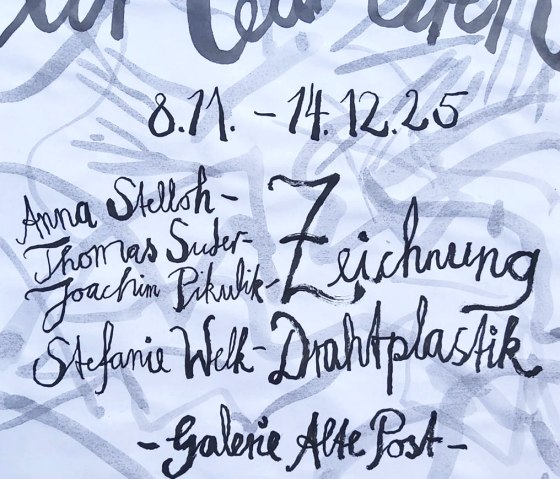 8.11. – 14.12.25
Anna Stelloh –
Thomas Suter –
Joachim Pikulik –
Zeichnung
Stefanie Welk – Drahtplastik
– Galerie Alte Post –